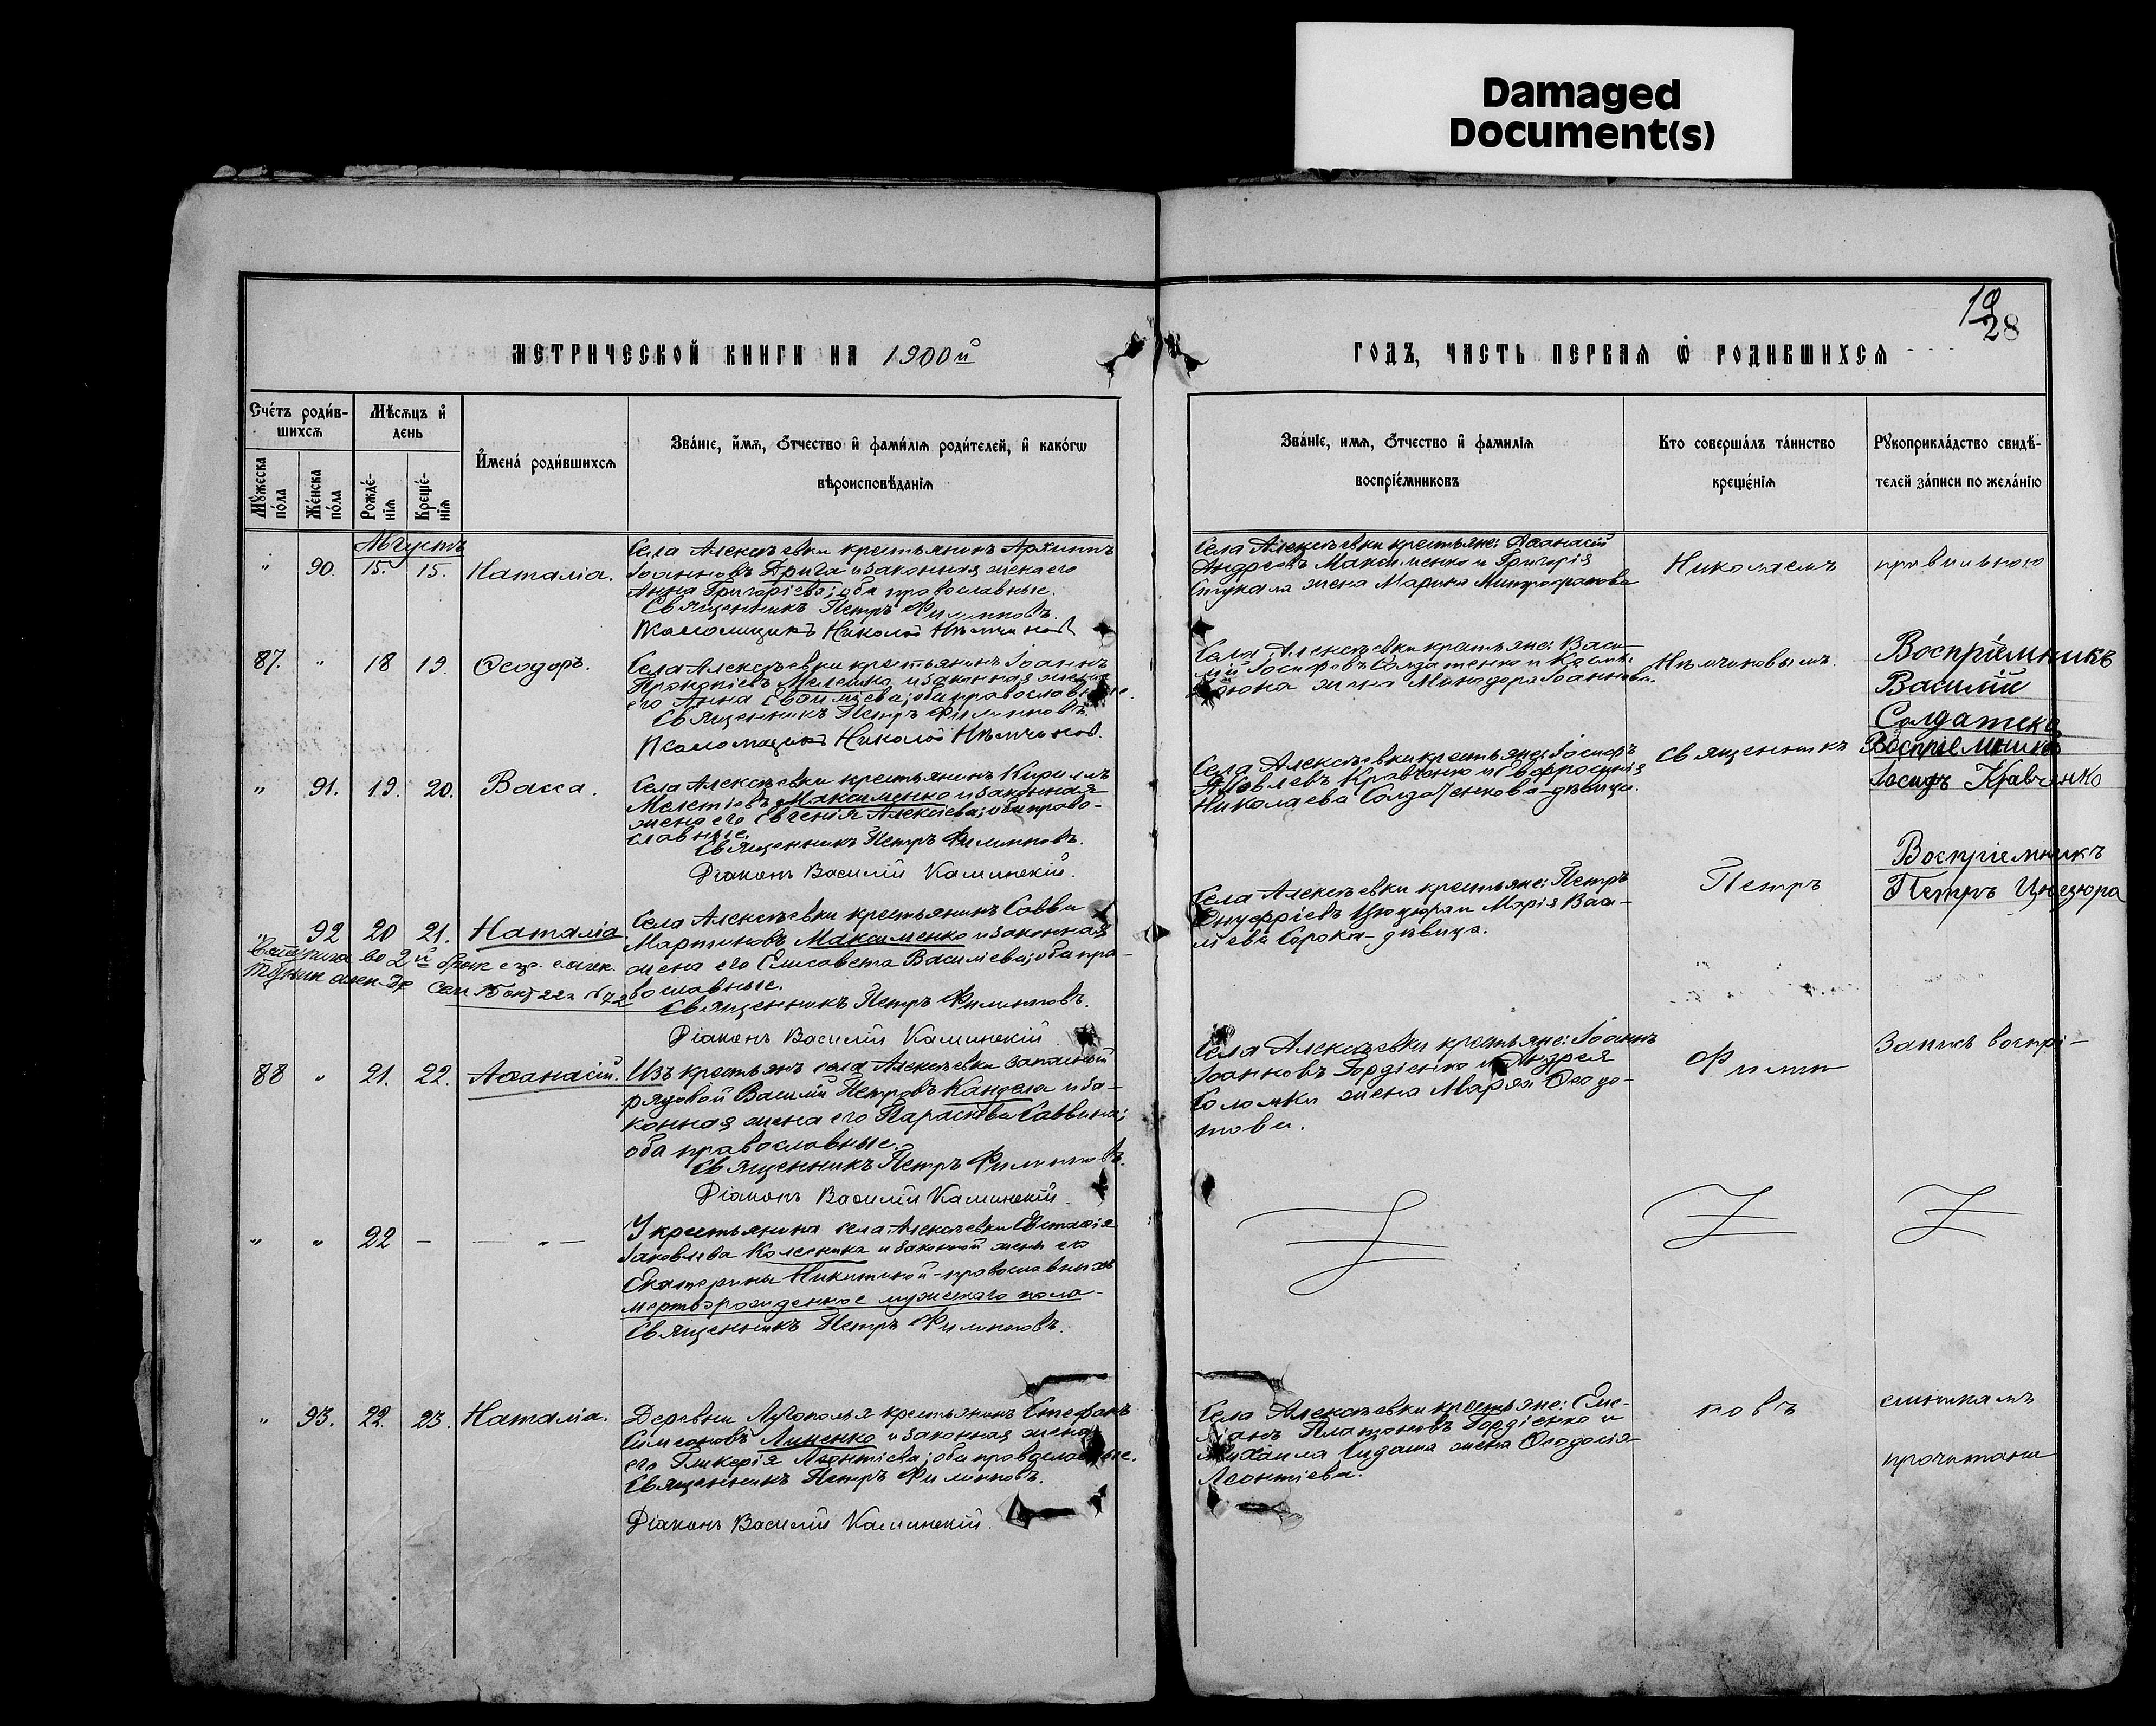 Damaged
Document(s)
19
28
МЕТРИЧЕСКОЙ КНИГИ НА 1900й
ГОДЪ, ЧАСТЬ ПЕРВАЯ Ѿ РОДИВШИХСЯ
Счетъ родив-
шихся
Мѣсяцъ и
день
Имена родившихся
Званіе, имя, отчество и фамилія родителей, и какогѡ
вѣроисповѣданія
Мужеска
пола
Женска
пола
Рожде-
нія
Креще-
нія
Званіе, имя, отчество и фамилія
воспріемниковъ
Кто совершалъ таинство
крещенія
Рукоприкладство свидѣ-
телей записи по желанію
Августъ
" 90. 15. 15. Наталія.
Села Алексѣевки крестьянинъ Архиппъ
Іоанновъ Дрига и законная жена его
Анна Григоріева; оба православные.
Священникъ Петръ Филипповъ.
Псаломщикъ Николай Нѣмчинов
Села Алексѣевки крестьяне: Аѳанасій
Андреевъ Максименко и Григорія
Стукала жена Марина Митрофанова
Николаемъ
правильною
87. " 18 19. Ѳеодоръ.
Села Алексѣевки крестьянинъ Іоаннъ
Прокопіевъ Мелешко и законная жена
его Анна Евѳиміева; оба православные.
Священникъ Петръ Филипповъ.
Псаломщикъ Николай Нѣмчинов.
Села Алексѣевки крестьяне: Васи-
лій Іосифовъ Солдатенко и
жена Минадора Іоаннова.
Нѣмчиновымъ.
Воспріемникъ
Василій
Солдатенко
" 91. 19. 20. Васса.
Села Алексѣевки крестьянинъ Кириллъ
Мелетіевъ Максименко и законная
жена его Евгенія Алексіева; оба право-
славные.
Священникъ Петръ Филипповъ.
Діаконъ Василій Калинскій.
Села Алексѣевки крестьяне: Іосифъ
Яковлевъ Кравченко и Евфросинія
Николаева Солдатенкова-дѣвица.
священникъ
Воспріемникъ
Іосифъ Кравченко
" 92 20 21. Наталія
Вступила во 2й бракъ
Села Алексѣевки крестьянинъ Савва
Мартиновъ Максименко и законная
жена его Елисавета Васильева; оба пра-
вославные.
Священникъ Петръ Филипповъ.
Діаконъ Василій Калинскій
Села Алексѣевки крестьяне: Петръ
Онуфріевъ Цюцюра и Марія Васи-
льева Сорока-дѣвица.
Петръ
Воспріемникъ
Петръ Цюцюра
88 " 21. 22. Аѳанасій.
Изъ крестьянъ села Алексѣевки запасный
рядовой Василій Петровъ Кандела и за-
конная жена его Параскева Саввина;
оба православные.
Священникъ Петръ Филипповъ.
Діаконъ Василій Калинскій.
Села Алексѣевки крестьяне: Іоаннъ
Іоанновъ Гордіенко и Андрея
Соломки жена Марѳа Ѳеодо-
това.
Филип
Запись воспрі-
" " 22 — — " —
У крестьянина села Алексѣевки Евстаѳія
Іаковлева Колесника и законной жены его
Екатерины Никитиной-православныхъ
мертворожденное мужескаго пола-
Священникъ Петръ Филипповъ.
" 93. 22. 23. Наталія.
Деревни Лукополья крестьянинъ Стефанъ
Симеоновъ Линенко и законная жена
его Гликерія Леонтіева; оба православные.
Священникъ Петръ Филипповъ.
Діаконъ Василій Калинскій.
Села Алексѣевки крестьяне: Еме-
ліанъ Платоновъ Гордіенко и
Михаила жена Ѳеодосія
Леонтіева.
повъ
емникамъ
прочитана